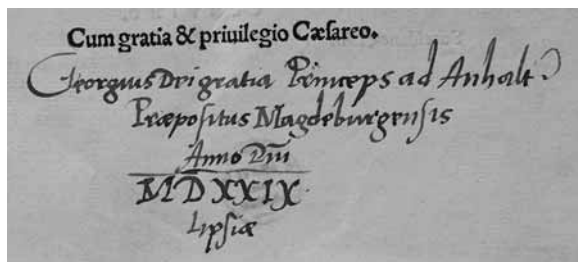 Cum gratia & priuilegio Cæsareo.
Georgius Dei gratia Princeps ad Anhalt
Præpositus Magdeburgensis
Anno Dñi
MDXXIX.
Lipsiæ